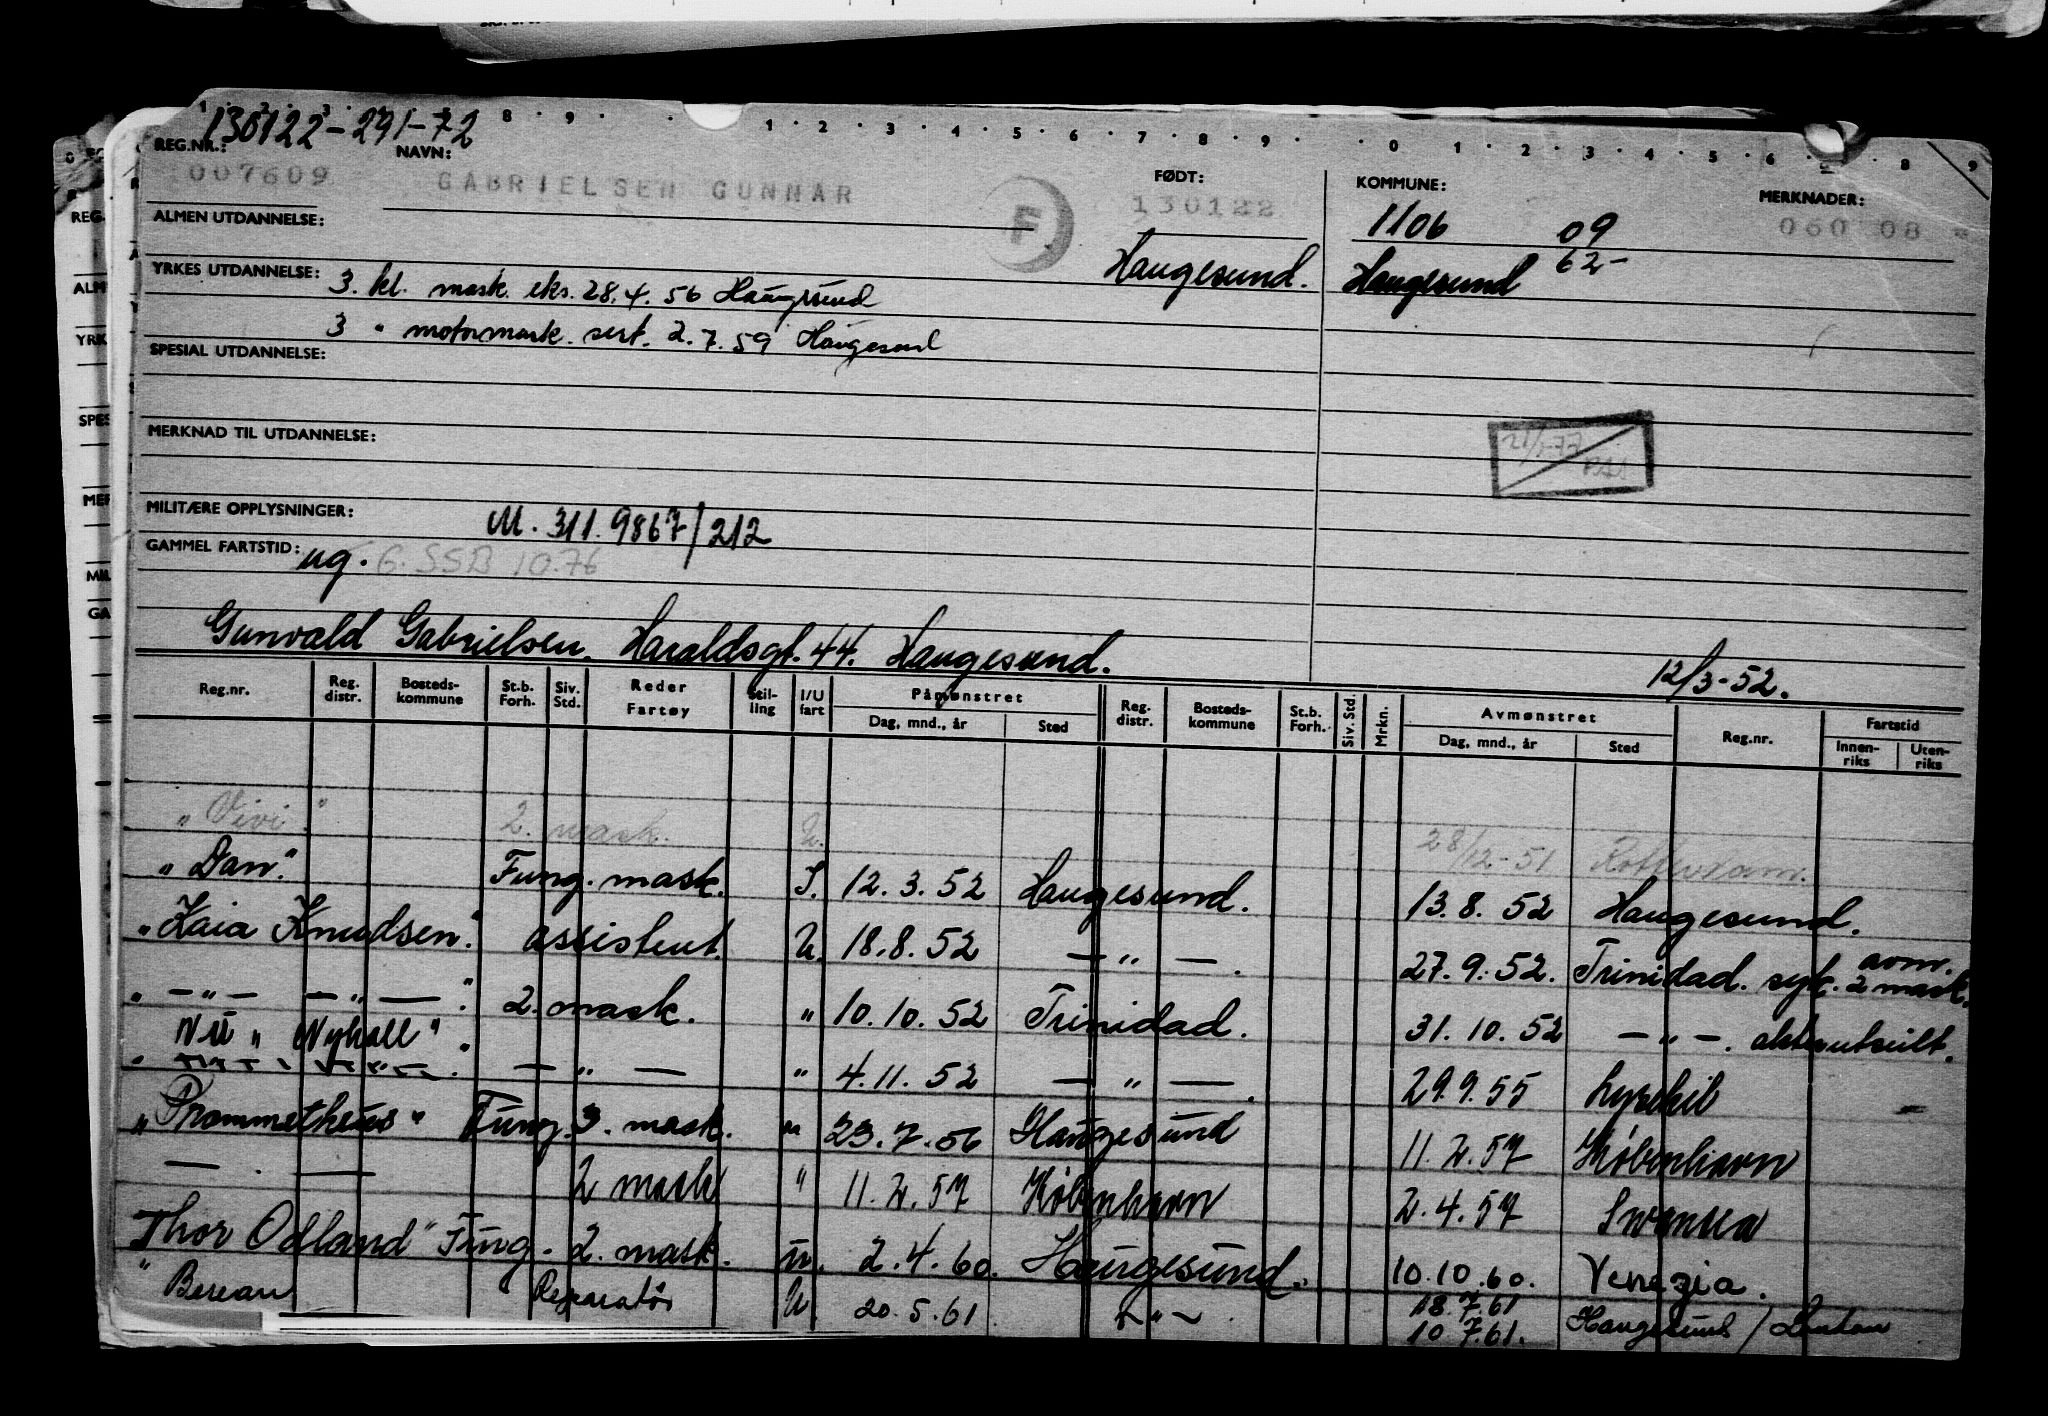 130122-291-72
1 2 3 8 9 1 2 3 4 5 6 7 8 9 0 1 2 3 4 5 6 8 9
REG.NR.: NAVN: FØDT: KOMMUNE: MERKNADER:
007609 GABRIELSEN GUNNAR F 130122 1106 09 060 08
ALMEN UTDANNELSE: Haugesund. Haugesund 62-
YRKES UTDANNELSE: 3. kl. mask. eks. 28.4.56 Haugesund
3 " motormask. sert. 2.7.59 Haugesund
SPESIAL UTDANNELSE:
MERKNAD TIL UTDANNELSE:
21/1-77
MILITÆRE OPPLYSNINGER: M. 311.9867/212
GAMMEL FARTSTID: ug. G.SSB 10.76
Gunvald Gabrielsen. Haraldsgt. 44. Haugesund. 12/3-52.
Reg.nr. Reg. distr. Bosteds-kommune St.b. Forh. Siv. Std. Reder Fartøy Stil-ling I/U fart Påmønstret Dag, mnd., år Sted Reg. distr. Bosteds-kommune St.b. Forh. Siv. Std. Mrkn. Avmønstret Dag, mnd., år Sted Reg.nr. Fartstid Innen-riks Uten-riks
"Vivi". 2. mask. U. 28/12-51 Rotterdam.
"Dan". Fung. mask. I. 12.3.52 Haugesund. 13.8.52 Haugesund.
"Kaia Knudsen". assistent. U. 18.8.52 — " — . 27.9.52. Trinidad. syk. avm. 2 mask.
" — " — — " — ". 2. mask. " 10.10.52 Trinidad. 31.10.52 — " —.
"Nyhall" — " — " 4.11.52 — " — . 29.9.55 Lysekil
"Prommetheus" Fung. 3. mask. " 23.7.56 Haugesund 11.2.57 København
— — 2 mask " 11.2.57 København 2.4.57 Swansea
"Thor Odland" Fung. 2. mask. u. 2.4.60. Haugesund. 10.10.60. Venezia.
Berean Reparatør U 20.5.61 — " — 18.7.61
10 7.61. Haugesund /